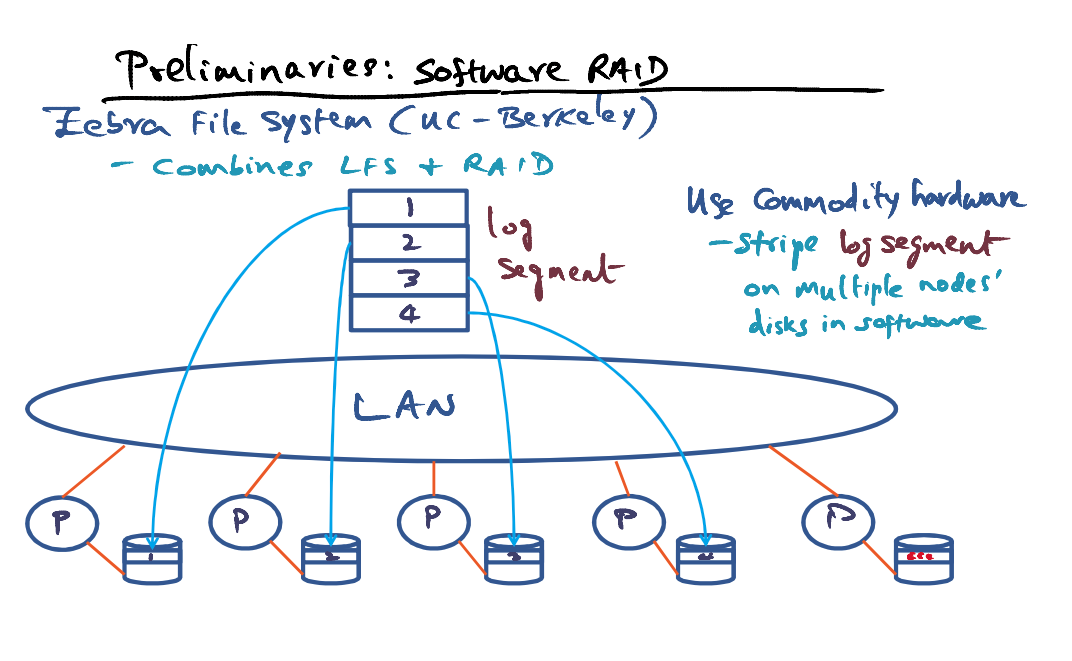 Preliminaries: Software RAID
Zebra File System (UC-Berkeley)
- Combines LFS + RAID
1
2
3
4
log
segment
Use Commodity hardware
- stripe log segment
on multiple nodes'
disks in software
LAN
P
P
P
P
P
1
2
3
4
ecc